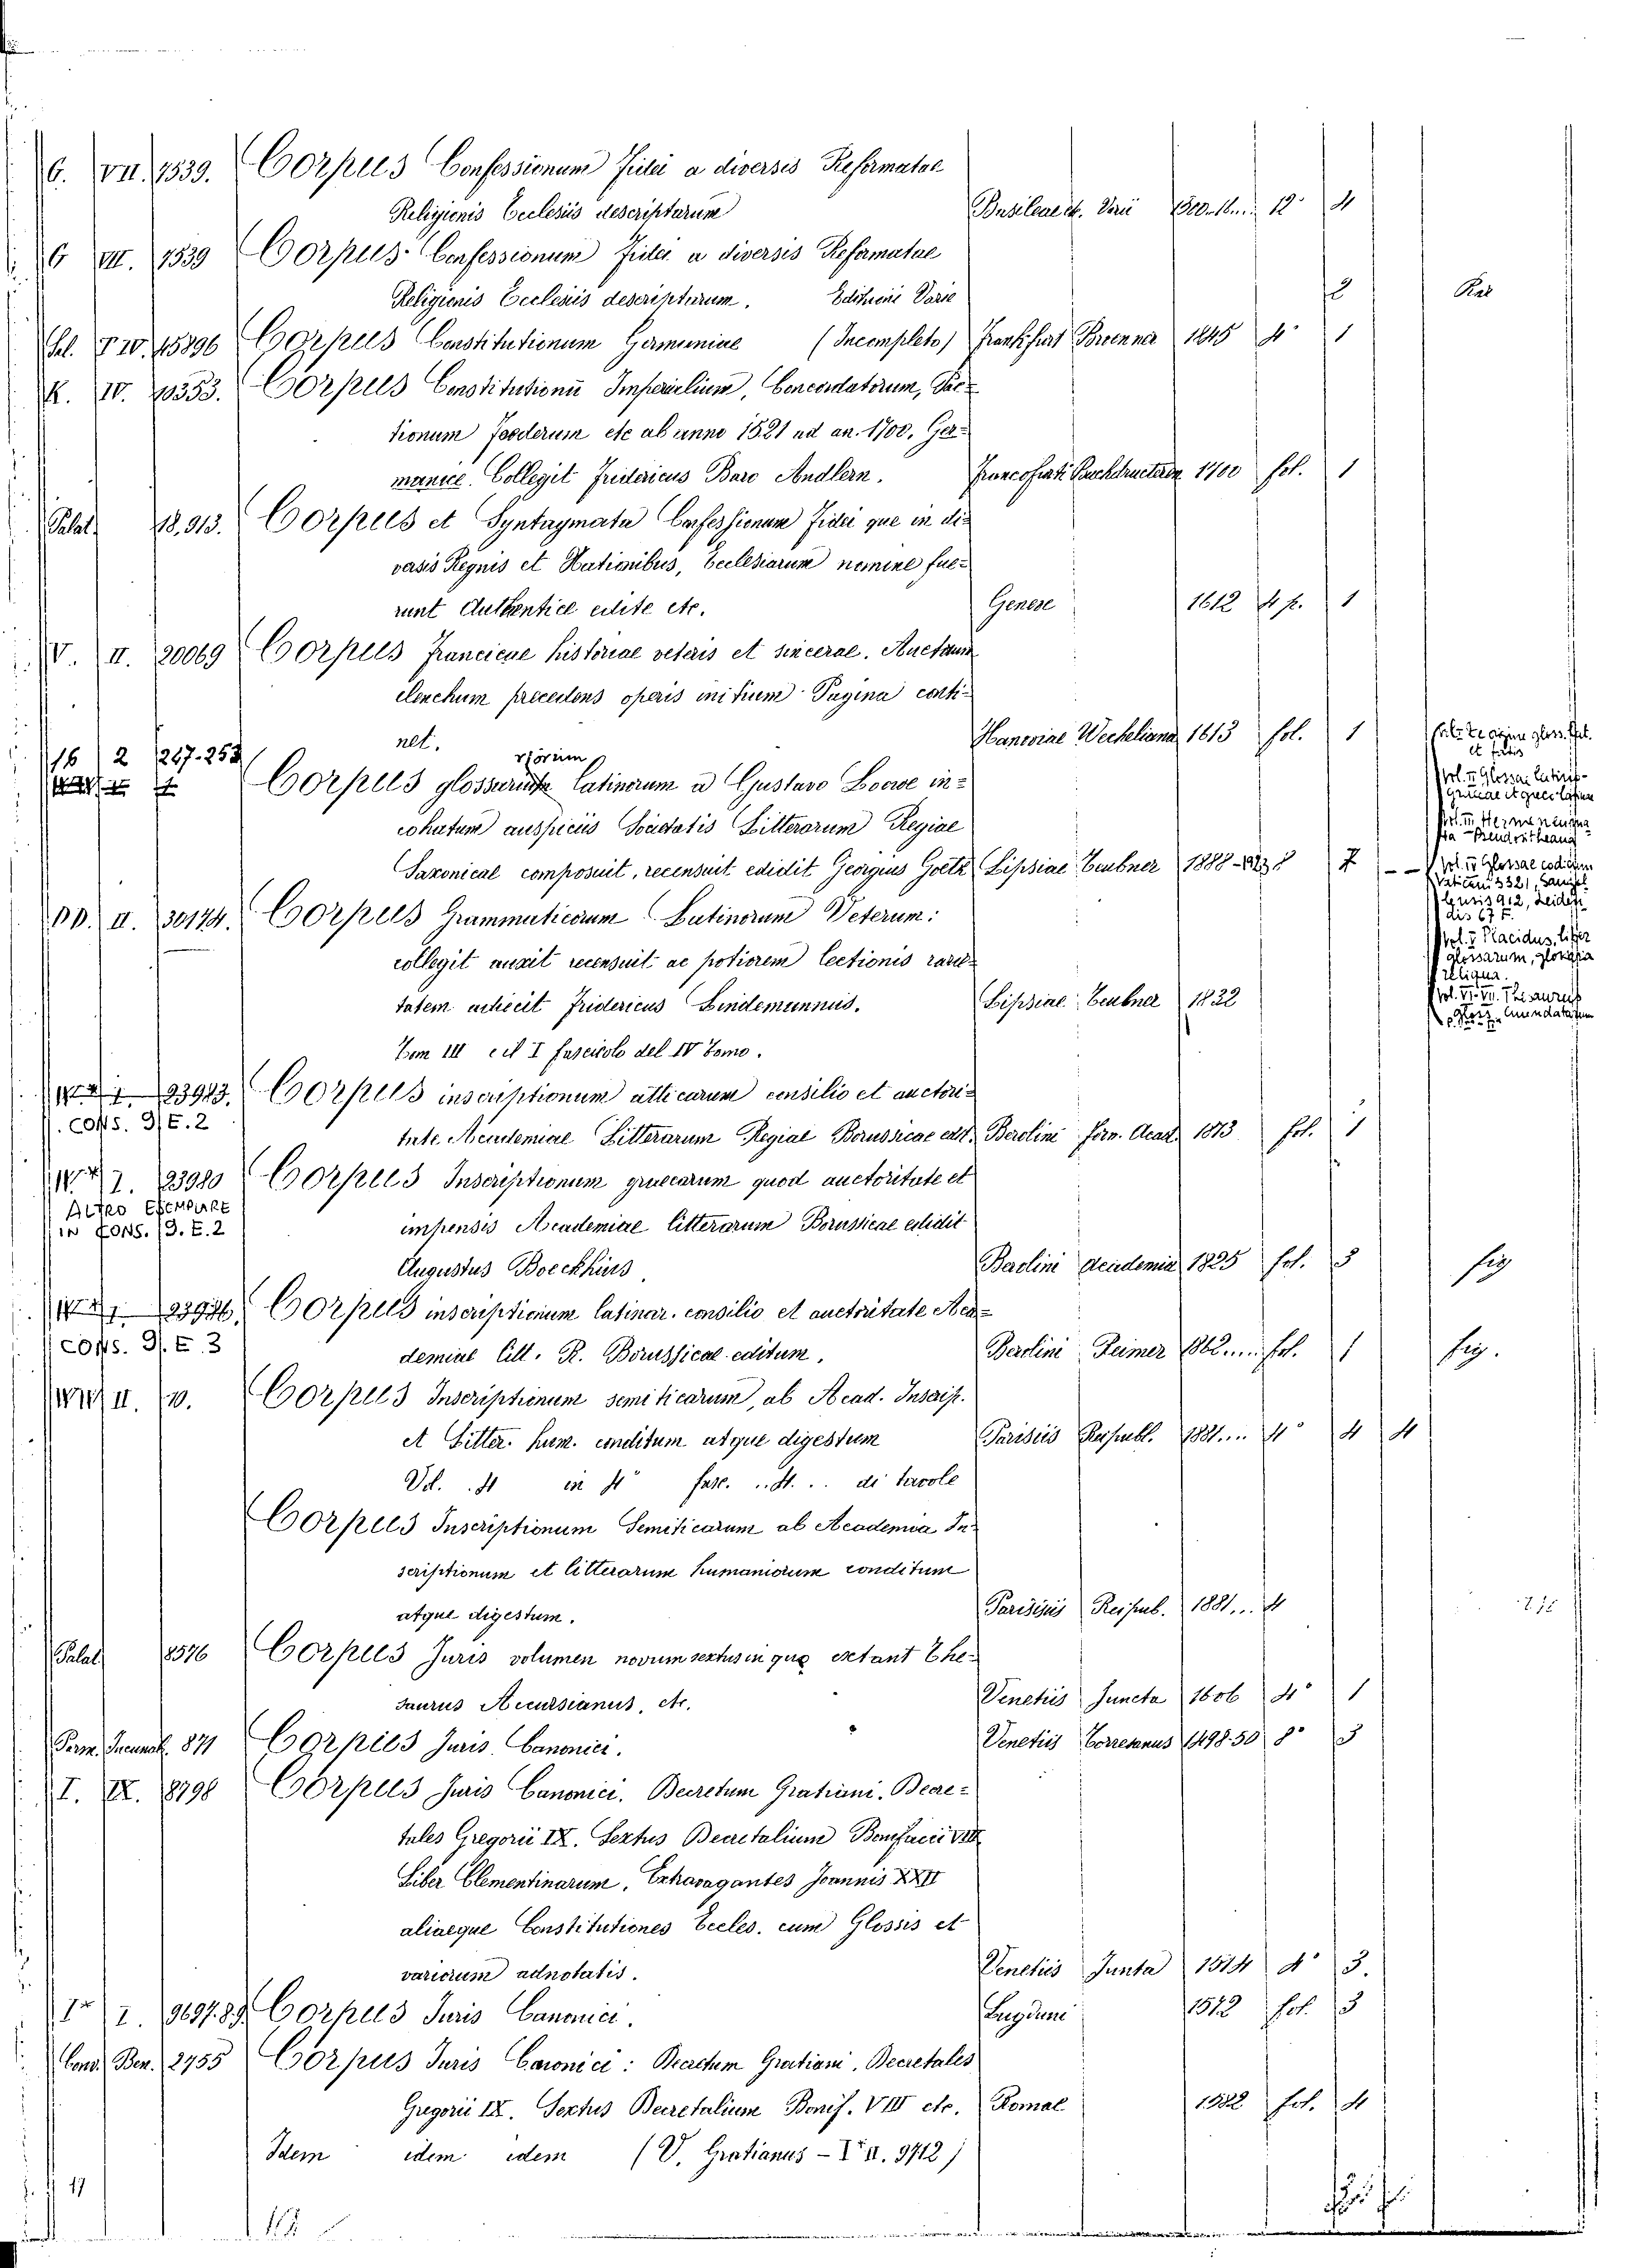 G. VII. 1539. Corpus Confessionum Fidei a diversis Reformatae
Religionis Ecclesiis descriptarum Basileae et. Varii 12° 4
G VII. 1539 Corpus Confessionum Fidei a diversis Reformatae
Religionis Ecclesiis descriptarum. Edizioni Varie 2
Sal. T IV. 15896 Corpus Constitutionum Germaniae (Incompleto) Frankfurt Broenner 1845 4° 1
K. IV. 10353. Corpus Constitutionū Imperialium, Concordatorum, Pac=
tionum foederum etc ab anno 1521 ad an. 1700. Ger=
manice. Collegit Fridericus Baro Andlern. 1700 fol. 1
Palat. 18,913. Corpus et Syntagmata Confessionum Fidei que in di=
versis Regnis et Nationibus, Ecclesiarum nomine fue=
runt Authentice edite etc. Geneve 1612 4 p. 1
V. II. 20069 Corpus Francicae historiae veteris et sincerae. Auctorum
elenchum precedens operis initium Pagina conti=
net. Hanoviae Wecheliana 1613 fol. 1
16 2 247-253 Corpus glossariorum Latinorum a Gustavo Loewe in=
cohatum auspiciis Societatis Litterarum Regiae
Saxonicae composuit, recensuit edidit Georgius Goetz Lipsiae Teubner 1888-1923 8 7
Vol. I De origine gloss. lat.
et fatis
Vol. II Glossae latino-
graecae et graeco latinae
Vol. III Hermeneuma
ta Pseudositheana
Vol. IV Glossae codicum
Vaticani 3321, Sangal
lensis 912, Leiden
sis 67 F.
Vol. V Placidus, liber
glossarum, glossaria
reliqua.
Vol. VI-VII. Thesaurus
gloss. emendatarum
PP. II. 30174. Corpus Grammaticorum Latinorum Veterum:
collegit auxit recensuit ac potiorem lectionis varie=
tatem adiecit Fridericus Lindemannus. Lipsiae Teubner 1832
Tom III ed I fascicolo del IV Tomo.
23943. Corpus inscriptionum atticarum consilio et auctori=
CONS. 9. E. 2
tate Academiae Litterarum Regiae Borussicae edit. Berolini form. Acad. 1873 fol. 1
I. 23980 Corpus Inscriptionum graecarum quod auctoritate et
ALTRO ESEMPLARE
IN CONS. 9. E. 2
impensis Academiae litterarum Borussicae edidit
Augustus Boeckhius Berolini Academia 1825 fol. 5 fig
Corpus inscriptionum latinar. consilio et auctoritate Aca=
CONS. 9. E 3
demiae litt. R. Borussicae editum. Berolini Reimer 1862... fol. 1 fig.
II. 10. Corpus Inscriptionum semiticarum, ab Acad. Inscrip.
et Litter. hum. conditum atque digestum Parisiis Reipubl. 1881... 4° 4 4
Vol. 4 in 4° fasc. .. 4... di tavole
Corpus Inscriptionum Semiticarum ab Academia In=
scriptionum et litterarum humaniorum conditum
atque digestum. Parisiis Reipub. 1881... 4
Palat. 8576 Corpus Juris volumen novum sextus in quo extant The=
saurus Accursianus, etc. Venetiis Juncta 1606 4° 1
Parm. Incunab. 871 Corpus Juris Canonici. Venetiis Torresanus 1498-50 8° 3
I. IX. 8798 Corpus Juris Canonici. Decretum Gratiani. Decre=
tales Gregorii IX. Sextus Decretalium Bonifacii VIII
Liber Clementinarum, Extravagantes Joannis XXII
aliaeque Constitutiones Eccles. cum Glossis et
variorum adnotatis. Venetiis Junta 1514 4° 3.
I. 9697.89 Corpus Juris Canonici. Lugduni fol. 3
Cons. Ben. 2755 Corpus Juris Canonici: Decretum Gratiani, Decretales
Gregorii IX. Sextus Decretalium Bonif. VIII etc. Romae 1582 fol. 4
Idem idem idem (V. Gratianus - I* II. 9712)
17